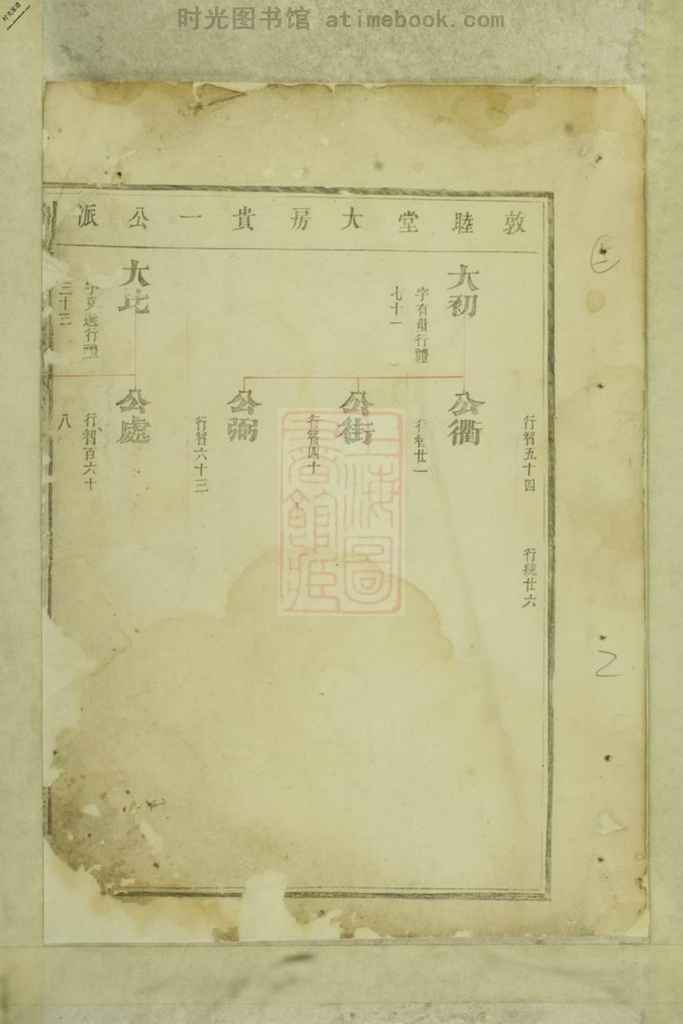 时光图书馆 atimebook.com
敦睦堂大房貴一公派
行智五十四
行統廿六
大初
字有
行禮
七十一
公衢
廿一
公街
行智四十
公弼
行智六十三
大
行禮
三十三
公處
行智百六十
八
上海圖書館藏